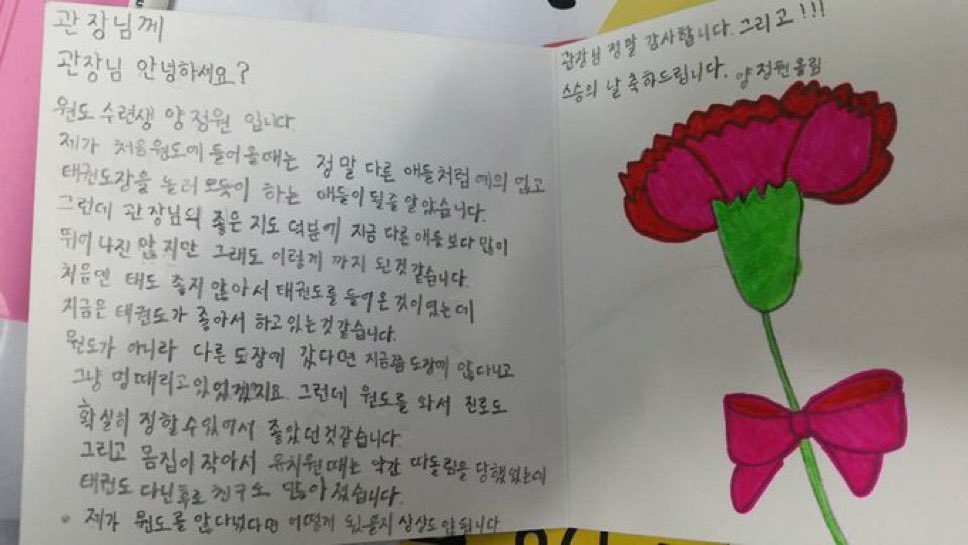 관장님께
관장님 안녕하세요?
원도 수련생 양정원 입니다.
제가 처음원도에 들어올때는 정말 다른 애들처럼 예의 없고
태권도장을 놀러 오듯이 하는 애들이 될줄 알았습니다.
그런데 관장님의 좋은 지도 덕분에 지금 다른 애들보다 많이
뛰어 나진 않지만 그래도 이렇게 까지 된것 같습니다.
처음엔 태도 좋지 않아서 태권도를 들어온 것이였는데
지금은 태권도가 좋아서 하고있는것 같습니다.
원도가 아니라 다른 도장에 갔다면 지금쯤 도장에 않다니고
그냥 멍때리고 있었겠지요. 그런데 원도를 와서 진로도
확실히 정할수있어서 좋았던것같습니다.
그리고 몸집이 작아서 유치원때는 약간 따돌림을 당했었는데
태권도 다닌후로 친구도 많아 졌습니다.
제가 원도를 안다녔다면 어떻게 됬을지 상상도 안됩니다
관장님 정말 감사합니다. 그리고!!!
스승의 날 축하드립니다. 양정원올림